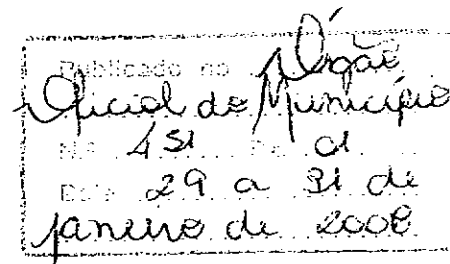 Publicado no Órgão
Oficial do Município
N.º 451 Pg. 01
Data 29 a 31 de
janeiro de 2008